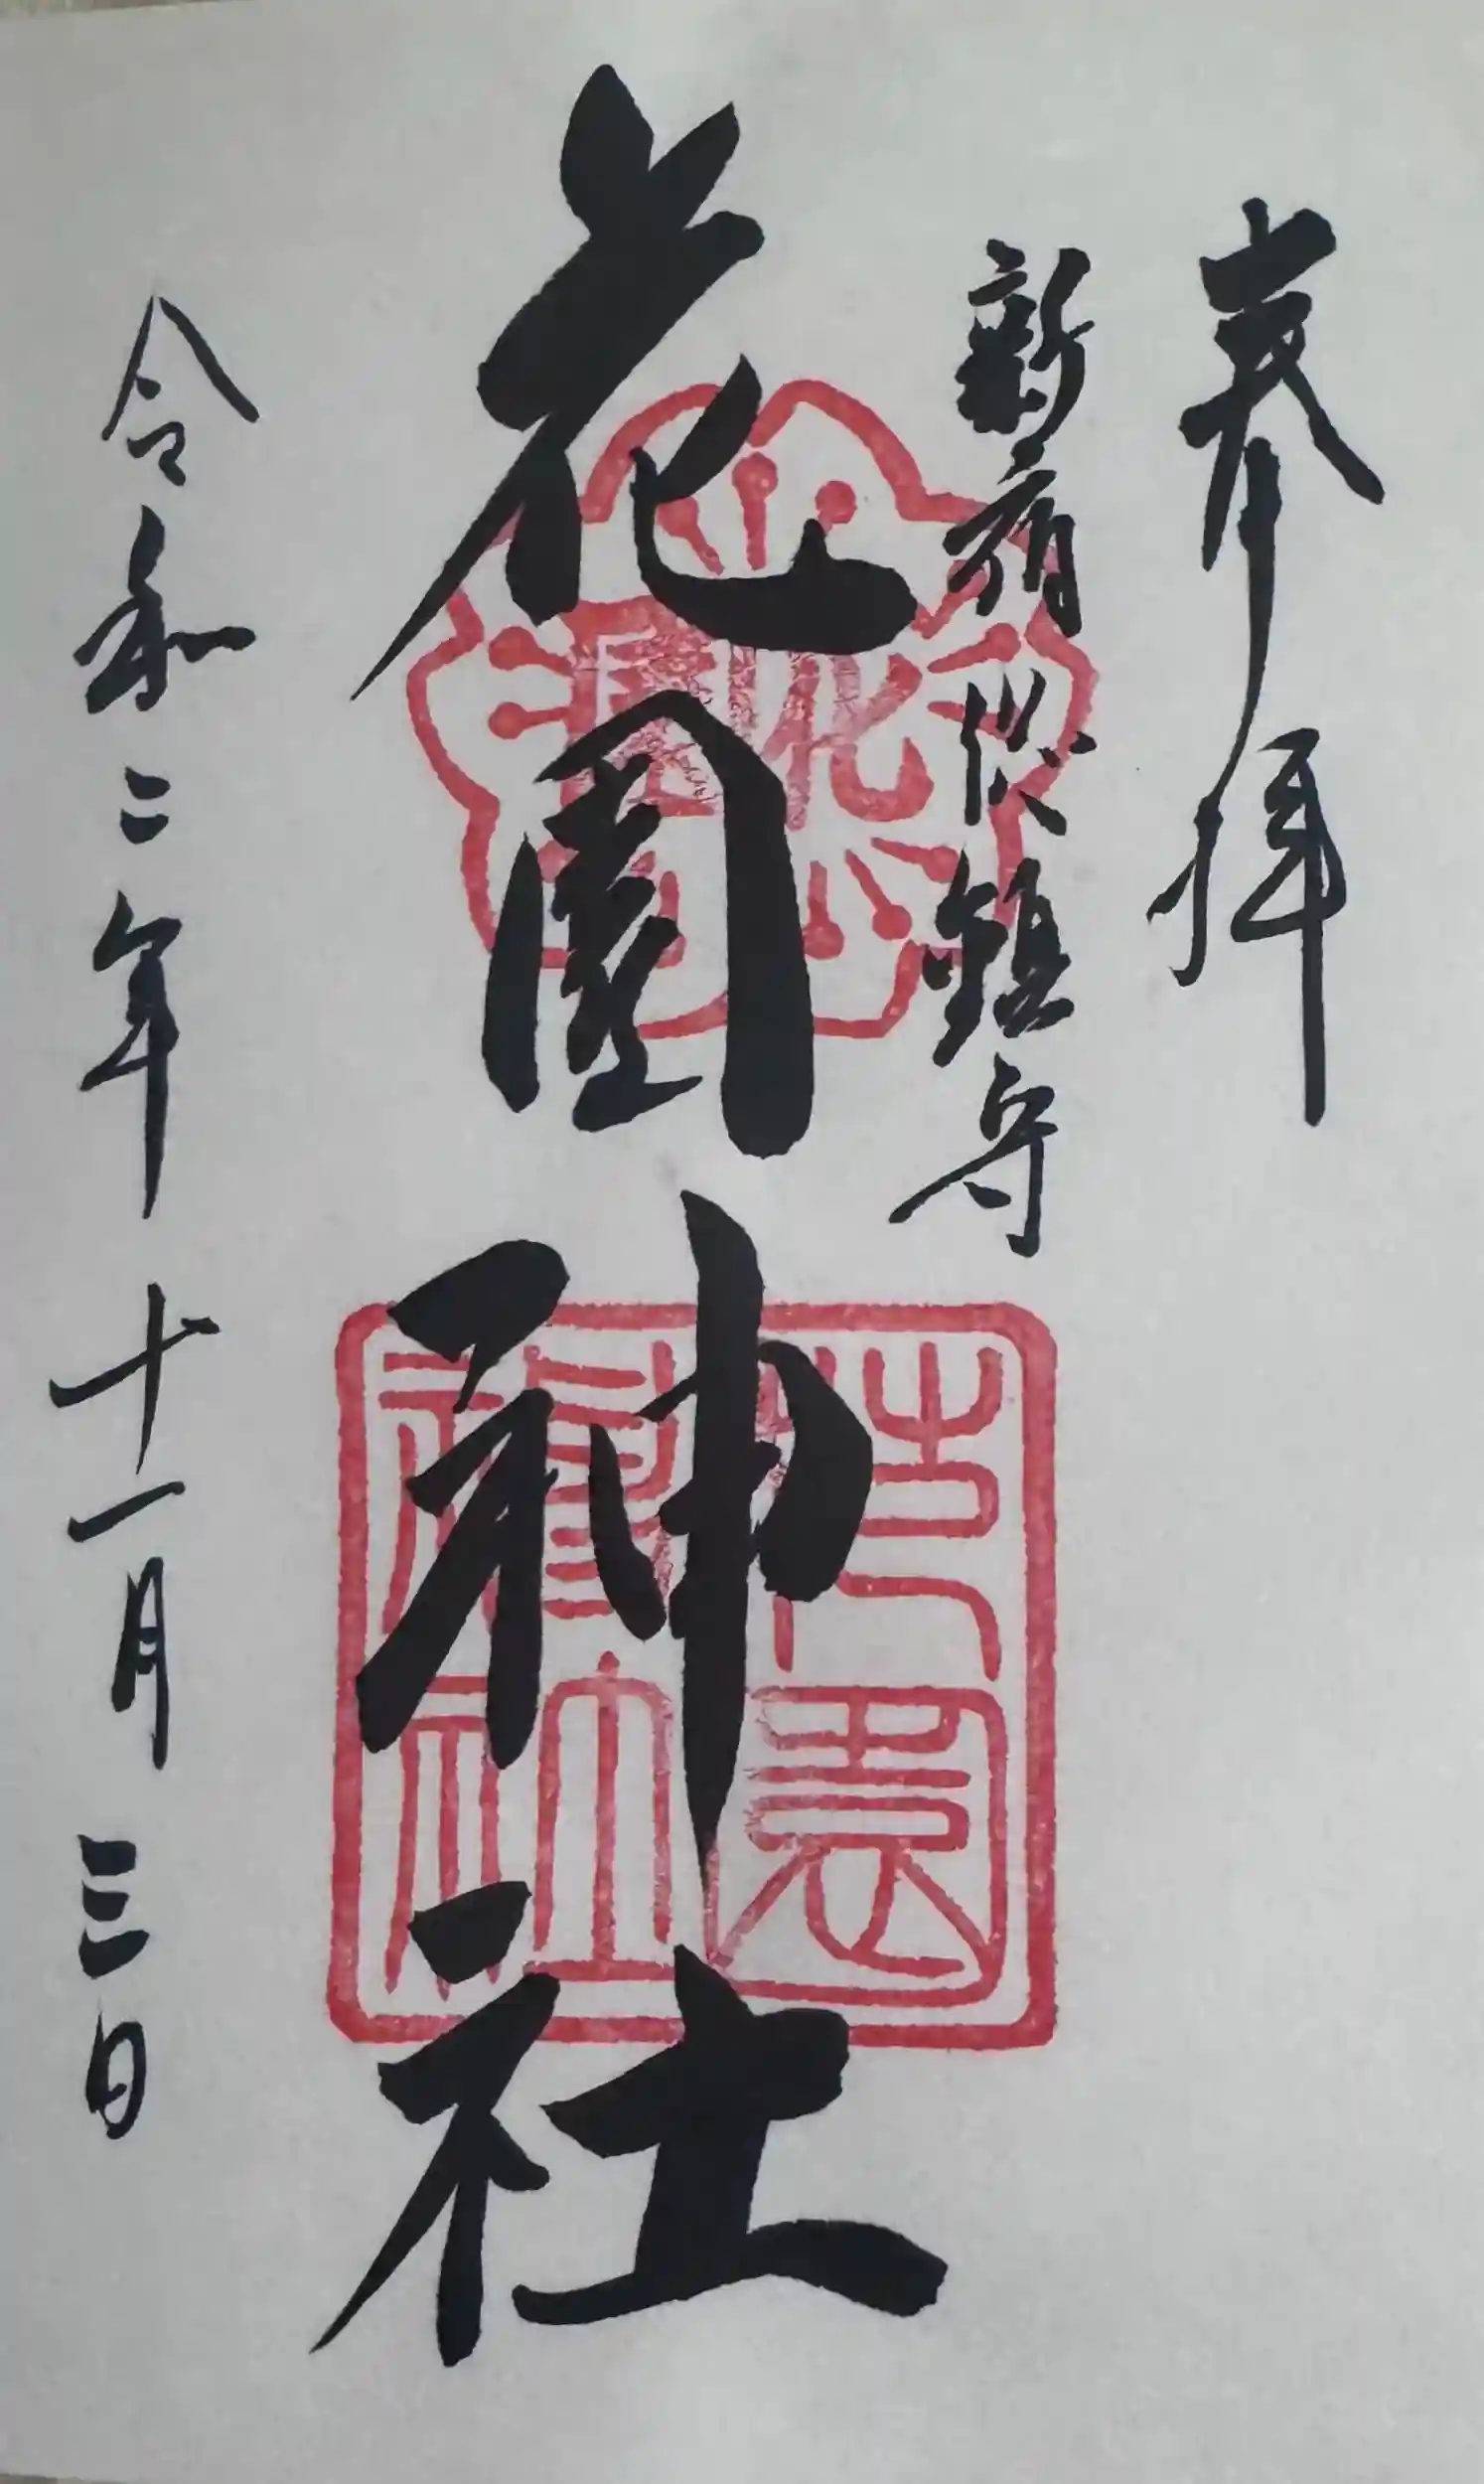 奉拝
新宿総鎮守
花園神社
令和二年十一月三日
花園神社